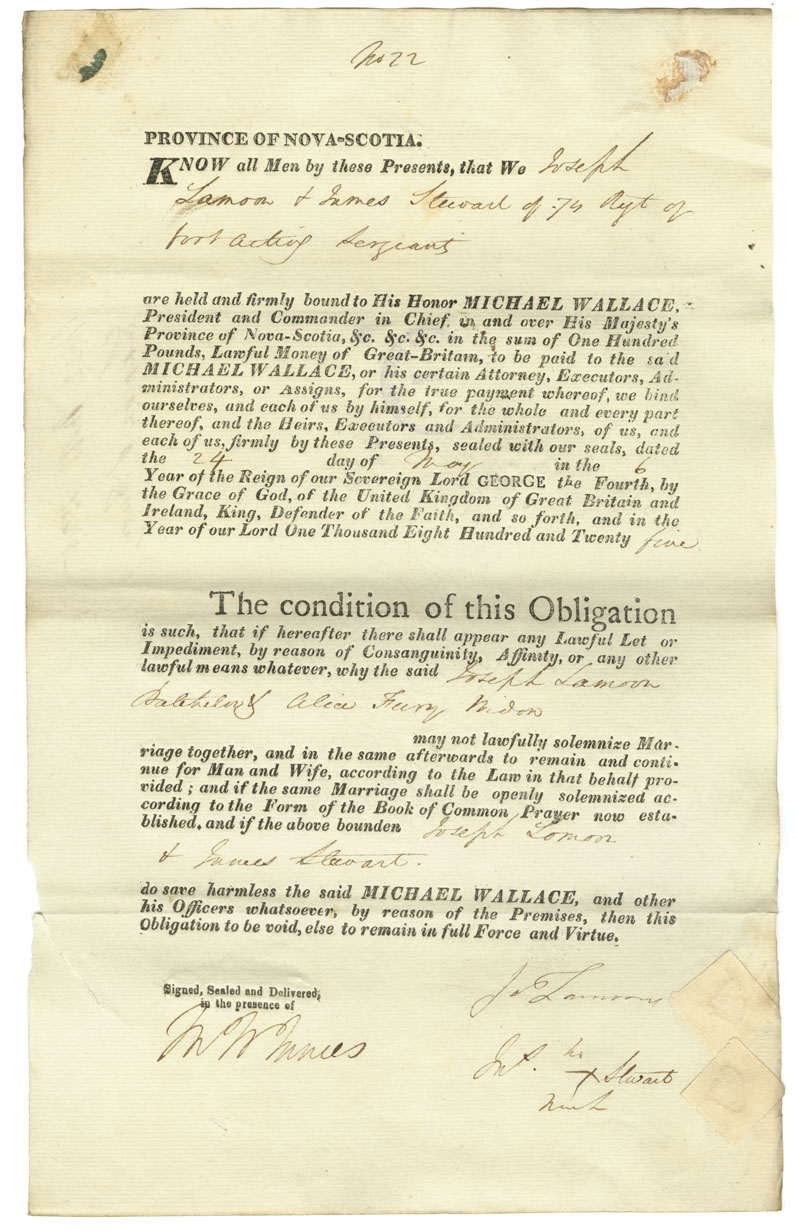 No 22
PROVINCE OF NOVA-SCOTIA.
KNOW all Men by these Presents, that We Joseph
Lamoon & James Stewart of 74 Regt of
foot Acting Sergeants
are held and firmly bound to His Honor MICHAEL WALLACE,
President and Commander in Chief in and over His Majesty's
Province of Nova-Scotia, &c. &c. &c. in the sum of One Hundred
Pounds, Lawful Money of Great-Britain, to be paid to the said
MICHAEL WALLACE, or his certain Attorney, Executors, Ad-
ministrators, or Assigns, for the true payment whereof, we bind
ourselves, and each of us by himself, for the whole and every part
thereof, and the Heirs, Executors and Administrators, of us, and
each of us, firmly by these Presents, sealed with our seals, dated
the 24 day of May in the 6
Year of the Reign of our Sovereign Lord GEORGE the Fourth, by
the Grace of God, of the United Kingdom of Great Britain and
Ireland, King, Defender of the Faith, and so forth, and in the
Year of our Lord One Thousand Eight Hundred and Twenty five
The condition of this Obligation
is such, that if hereafter there shall appear any Lawful Let or
Impediment, by reason of Consanguinity, Affinity, or any other
lawful means whatever, why the said Joseph Lamoon
Batchelor & Alice Fury Widow
may not lawfully solemnize Mar-
riage together, and in the same afterwards to remain and conti-
nue for Man and Wife, according to the Law in that behalf pro-
vided; and if the same Marriage shall be openly solemnized ac-
cording to the Form of the Book of Common Prayer now esta-
blished, and if the above bounden Joseph Lomon
& James Stewart.
do save harmless the said MICHAEL WALLACE, and other
his Officers whatsoever, by reason of the Premises, then this
Obligation to be void, else to remain in full Force and Virtue.
Signed, Sealed and Delivered,
in the presence of
Jos Lamoon
his
X Stewart
mark